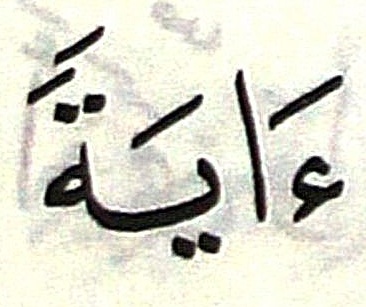 ءَايَةً